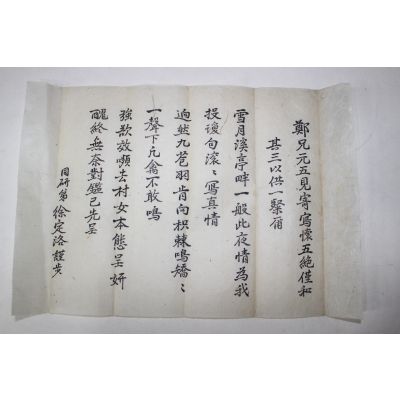 鄭兄元五見寄寫懷五絕僅和
其三以供一粲
雪月溪亭畔一般此夜情為我
投瓊句滚〻寫真情
逈然九苞羽肯向枳棘鳴矯〻
一聲下凡禽不敢鳴
強欲效嚬去村女本態呈妍
醜終無奈對鑑已先呈
同研弟徐定洛謹步